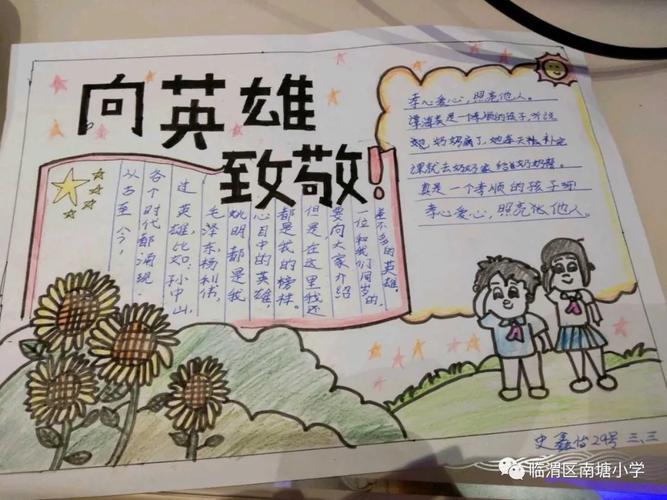 向英雄
致敬！
从古至今，
各个时代都涌现
过英雄，比如：孙中山，
毛泽东、杨利伟，
姚明都是我
心目中的英雄，
都是我的榜样。
但是，在这里我还
要向大家介绍
一位和我们同岁的，
差不多的英雄，
孝心爱心，照亮他人。
是一个孝顺的孩子，听说
她奶奶病了，她每天
课就去奶奶家给奶奶
真是一个孝顺的孩子呀
孝心爱心，照亮他人。
史鑫怡29号 三、三
临渭区南塘小学